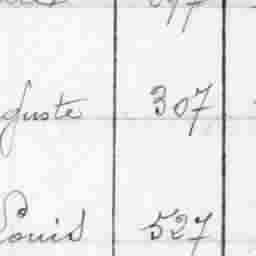 guste 307
Louis 527